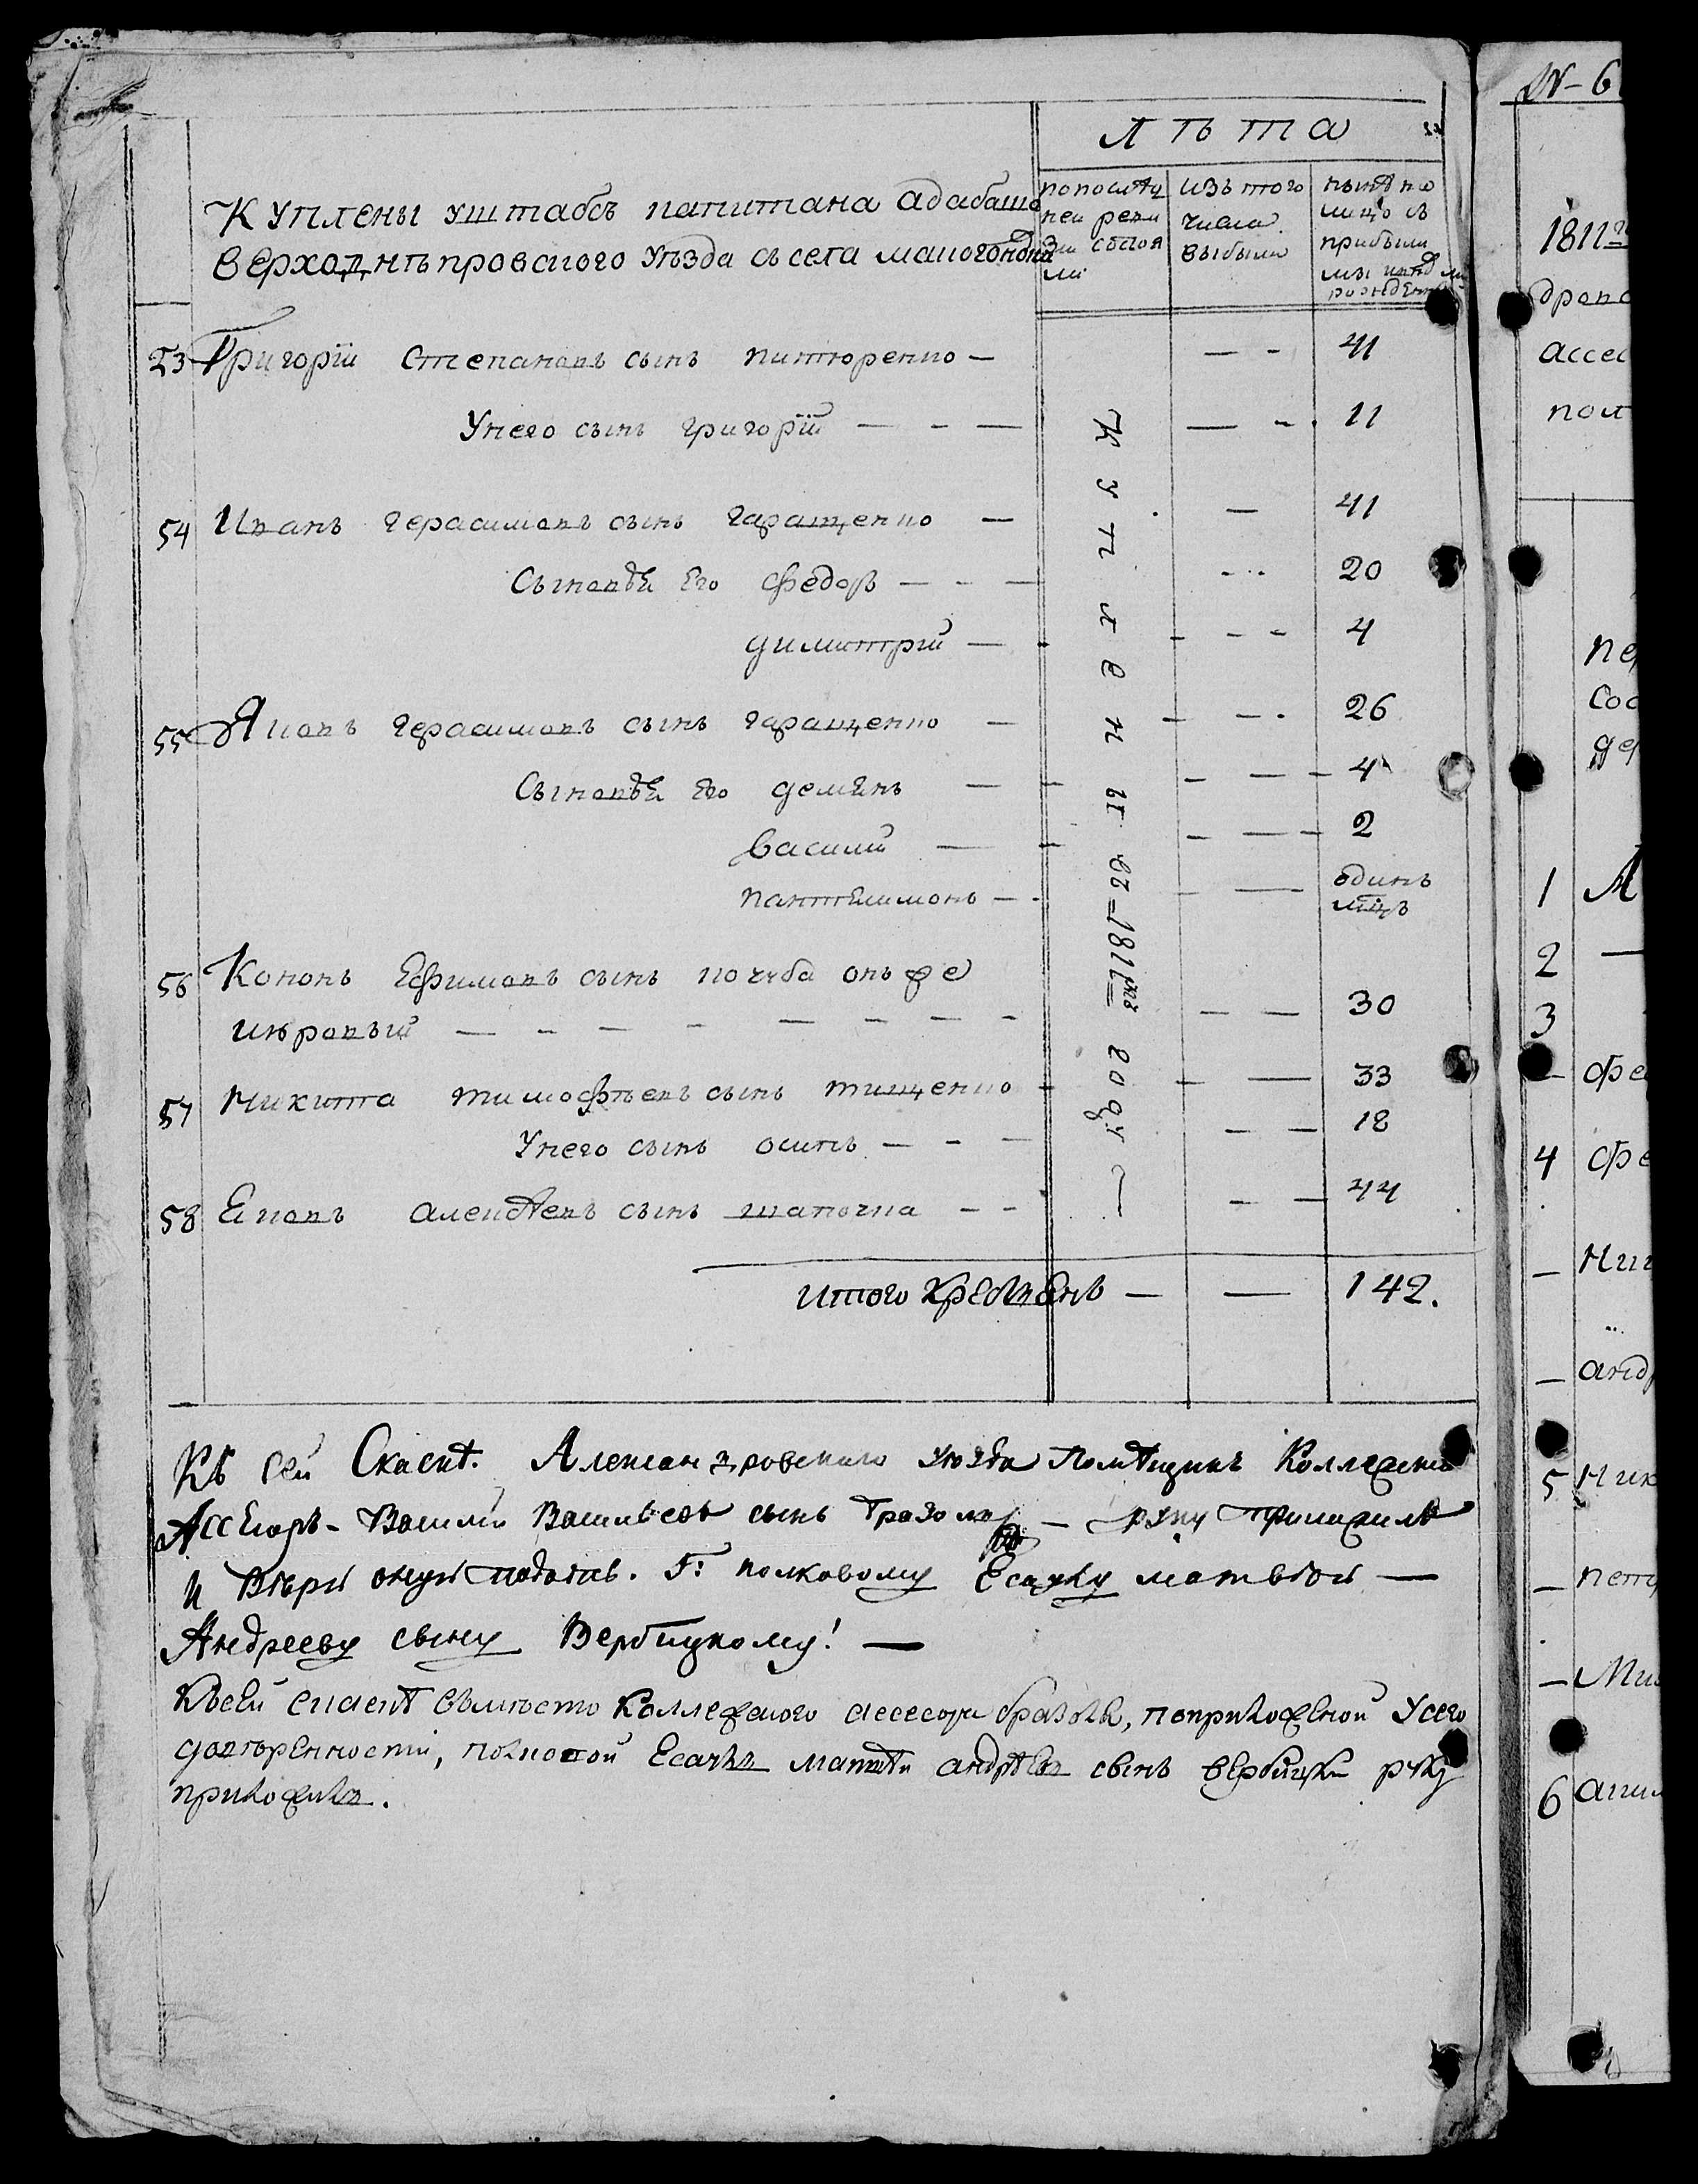 Лѣта
Куплены уштабсъ капитана адабаша
Верходнѣпровского уѣзда съсела малого
попослѣд
ней реви
зии состоя
ли
изъ того
числа
выбыло
нынѣ на
лицо съ
прибылы
ми
рожденн
53 Григорїй Степановъ сынъ питторенко — — - 41
Унего сынъ григорїй — - — — - 11
54 Иванъ герасимовъ сынъ гаращенко — — 41
Сыновѣй Его Федоръ — - — 20
димитрїй — - - - 4
55 Яковъ герасимовъ сынъ гаращенко — — - 26
Сыновѣй Его деменъ — — - 4
Василий — — - 2
пантилимонъ — - — одинъ
мцъ
56 Кононъ Ефимовъ сынъ кочуба онъ же
— - — - — - — - — — 30
57 Никита тимофѣевъ сынъ тищенко - — 33
Унего сынъ осипъ — - — — 18
58 Яковъ алексѣевъ сынъ шапочка - - - — 44
Куплены въ 1811мъ году —
итого крестьянъ — — 142.
Къ сей Сказкѣ. Александровскаго уѣзда Помѣщикъ Коллежскъ
Ассесоръ - Василий Васильевъ сынъ — руку приложилъ
и Вѣрю оную подать. Г: полковому Есаулу матвѣю —
Андрееву сыну Вербицкому! —
Ксей скаскѣ вомѣсто Коллежского асесора, поприложеной Усего
довѣренности, полковой Есаулъ матвѣй андрѣевъ сынъ вербицкий руку
приложилъ.
№ 6
1811го
драпо
ассес
кол
пе
сос
де
1 М
2 —
3
— фе
4 фе
— Ник
— анд
5 Ник
— пет
— Ми
6